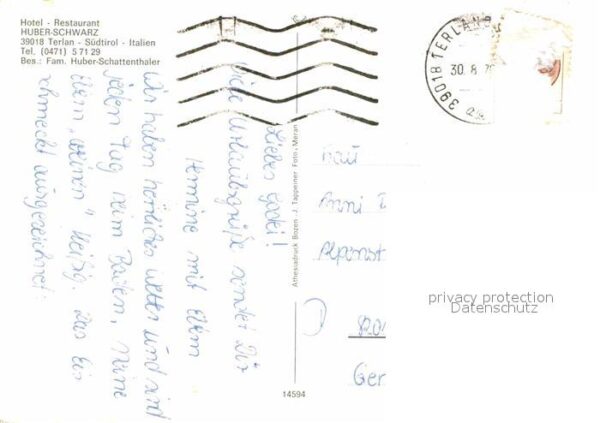 Hotel - Restaurant
HUBER-SCHWARZ
39018 Terlan - Südtirol - Italien
Tel. (0471) 5 71 29
Bes.: Fam. Huber-Schattenthaler
39018 TERLAN
30.8.
Liebes Godei!
Viele Urlaubsgrüße sendet Dir
Hermine mit Eltern
Wir haben herrliches Wetter und sind
jeden Tag beim Baden, meine
Eltern "weinen" fleißig. Das Eis
schmeckt ausgezeichnet.
Athesiadruck Bozen - J. Tappeiner Foto, Meran
14594
Frau
Anni
Alpenst
D
Ger
privacy protection
Datenschutz